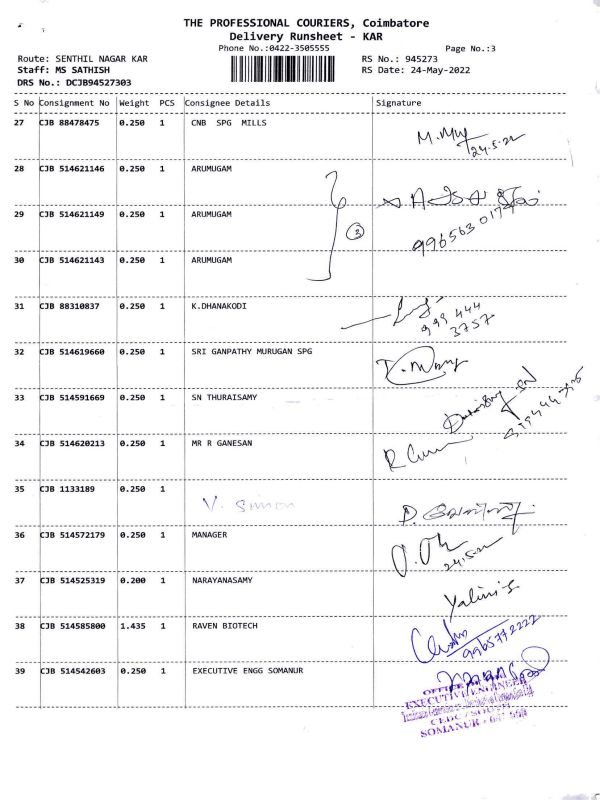 THE PROFESSIONAL COURIERS, Coimbatore
Delivery Runsheet - KAR
Phone No.:0422-3505555
Page No.:3
Route: SENTHIL NAGAR KAR
RS No.: 945273
Staff: MS SATHISH
RS Date: 24-May-2022
DRS No.: DCJB94527303
S No Consignment No Weight PCS Consignee Details Signature
27 CJB 88478475 0.250 1 CNB SPG MILLS
24-5-22
28 CJB 514621146 0.250 1 ARUMUGAM
29 CJB 514621149 0.250 1 ARUMUGAM
3
30 CJB 514621143 0.250 1 ARUMUGAM
31 CJB 88310837 0.250 1 K.DHANAKODI
999 444
3757
32 CJB 514619660 0.250 1 SRI GANPATHY MURUGAN SPG
33 CJB 514591669 0.250 1 SN THURAISAMY
34 CJB 514620213 0.250 1 MR R GANESAN
35 CJB 1133189 0.250 1
V. Simon
36 CJB 514572179 0.250 1 MANAGER
24.5.22
37 CJB 514525319 0.200 1 NARAYANASAMY
Yalini.s
38 CJB 514585800 1.435 1 RAVEN BIOTECH
9965772222
39 CJB 514542603 0.250 1 EXECUTIVE ENGG SOMANUR
EXECUTIVE ENGINEER
SOMANUR